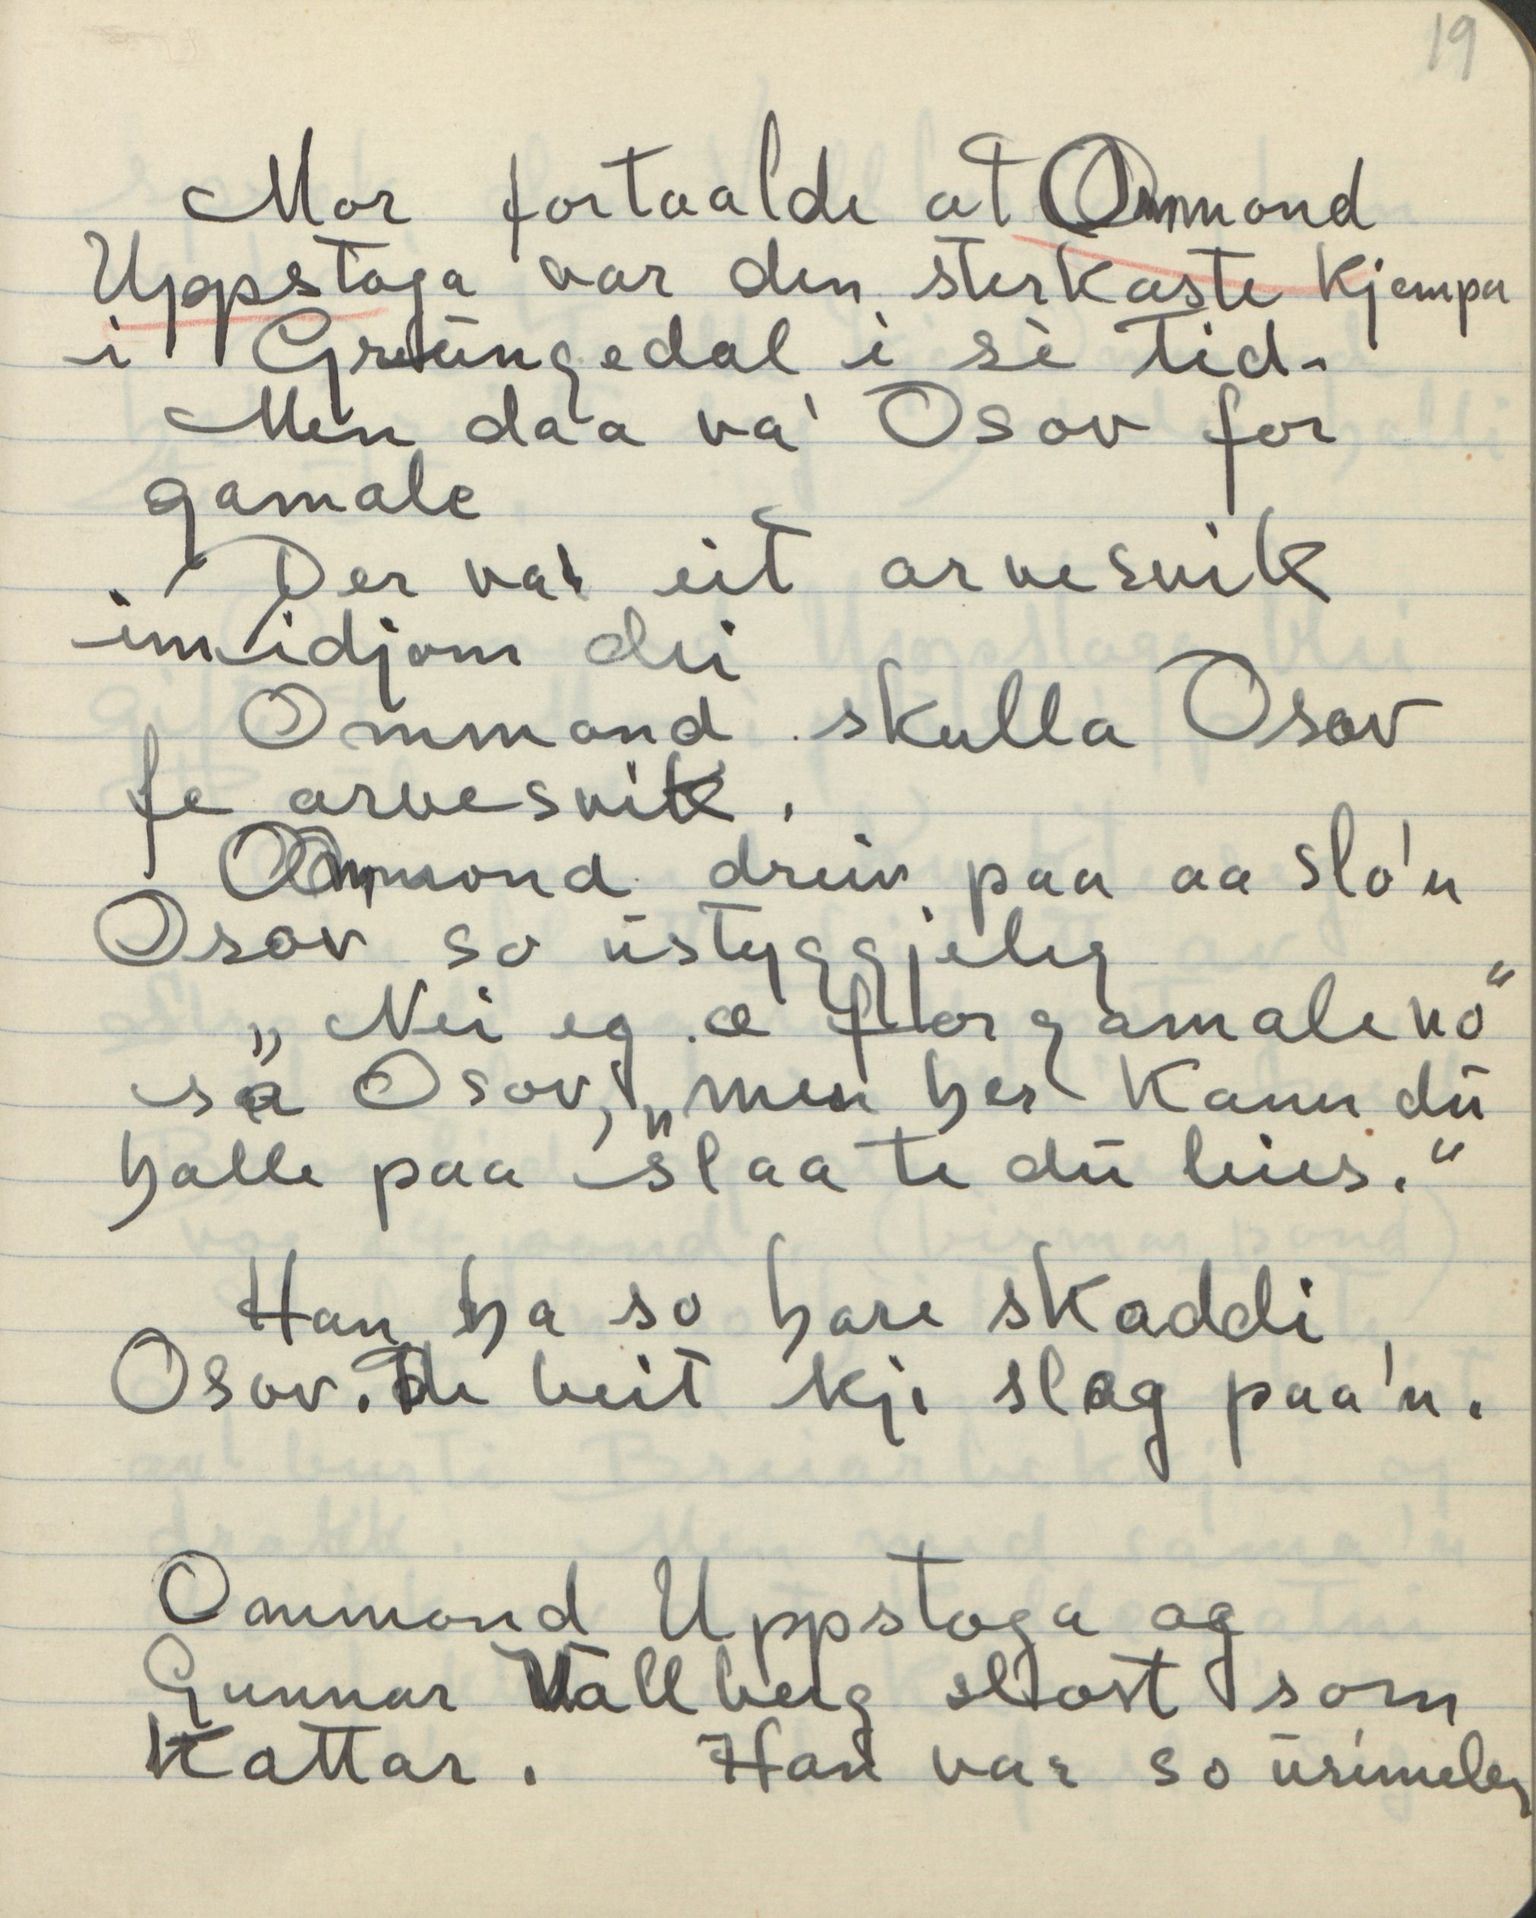 19
Mor fortaalde at Ommond
Uppstoga var den sterkaste kjempa
i Grüngedal i sè tid.
Men daa va' Osov for
gamale
Der var eit arvesvik
imidjom dei
Ommond skulla Osov
fe arvesvik.
Ommond dreiv paa aa slo'n
Osov so üstyggjeleg
„Nei eg æ for gamale no“
sa Osov, „men her kann dü
halle paa slaa te dü leies.“
Han ha so hare skaddi
Osov. De beit kji slag paa'n.
Ommond Uppstoga og
Gunnar Vallberg slost som
kattar. Han var so ürimeleg